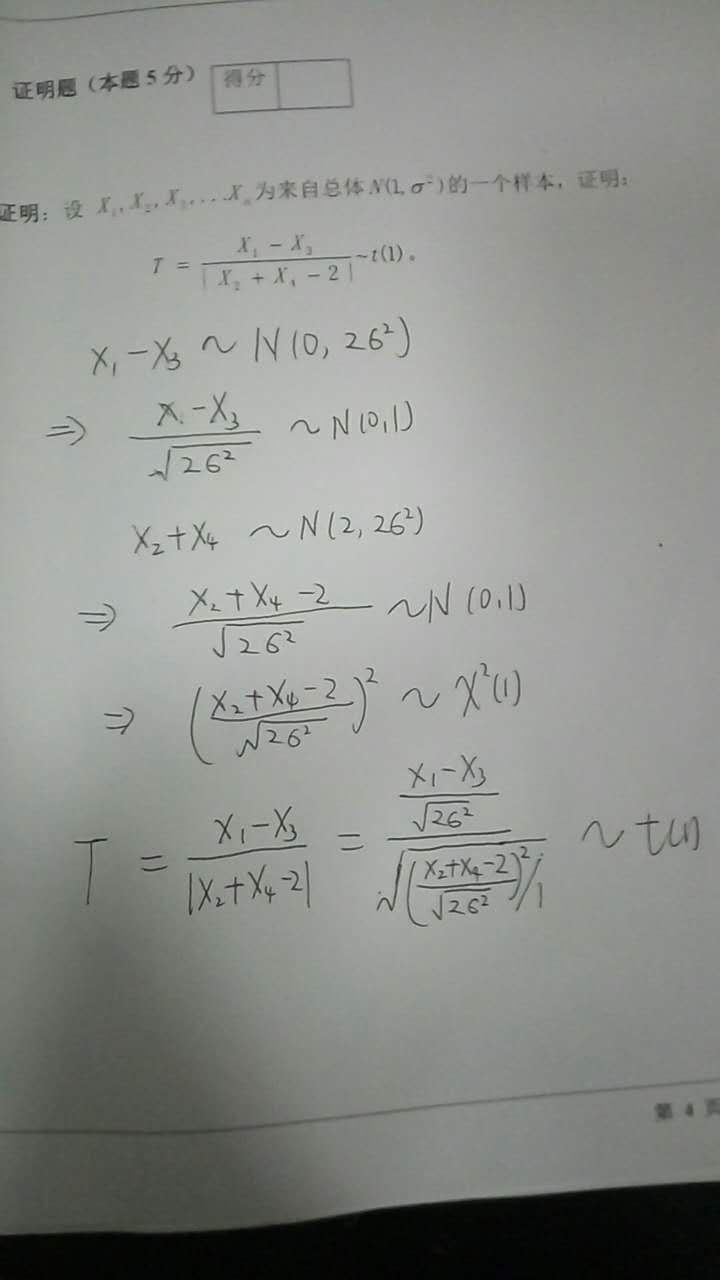 证明题（本题5分） 得分
证明：设 X₁, X₂, X₃, ... Xₙ 为来自总体 N(1, σ²) 的一个样本，证明：
T = (X₁ − X₃) / |X₂ + X₄ − 2| ~ t(1)。
X₁ − X₃ ~ N(0, 2σ²)
⇒ (X₁ − X₃) / √(2σ²) ~ N(0,1)
X₂ + X₄ ~ N(2, 2σ²)
⇒ (X₂ + X₄ − 2) / √(2σ²) ~ N(0,1)
⇒ ((X₂ + X₄ − 2) / √(2σ²))² ~ χ²(1)
T = (X₁ − X₃) / |X₂ + X₄ − 2| = ((X₁ − X₃) / √(2σ²)) / √(((X₂ + X₄ − 2) / √(2σ²))² / 1) ~ t(1)
第 4 页